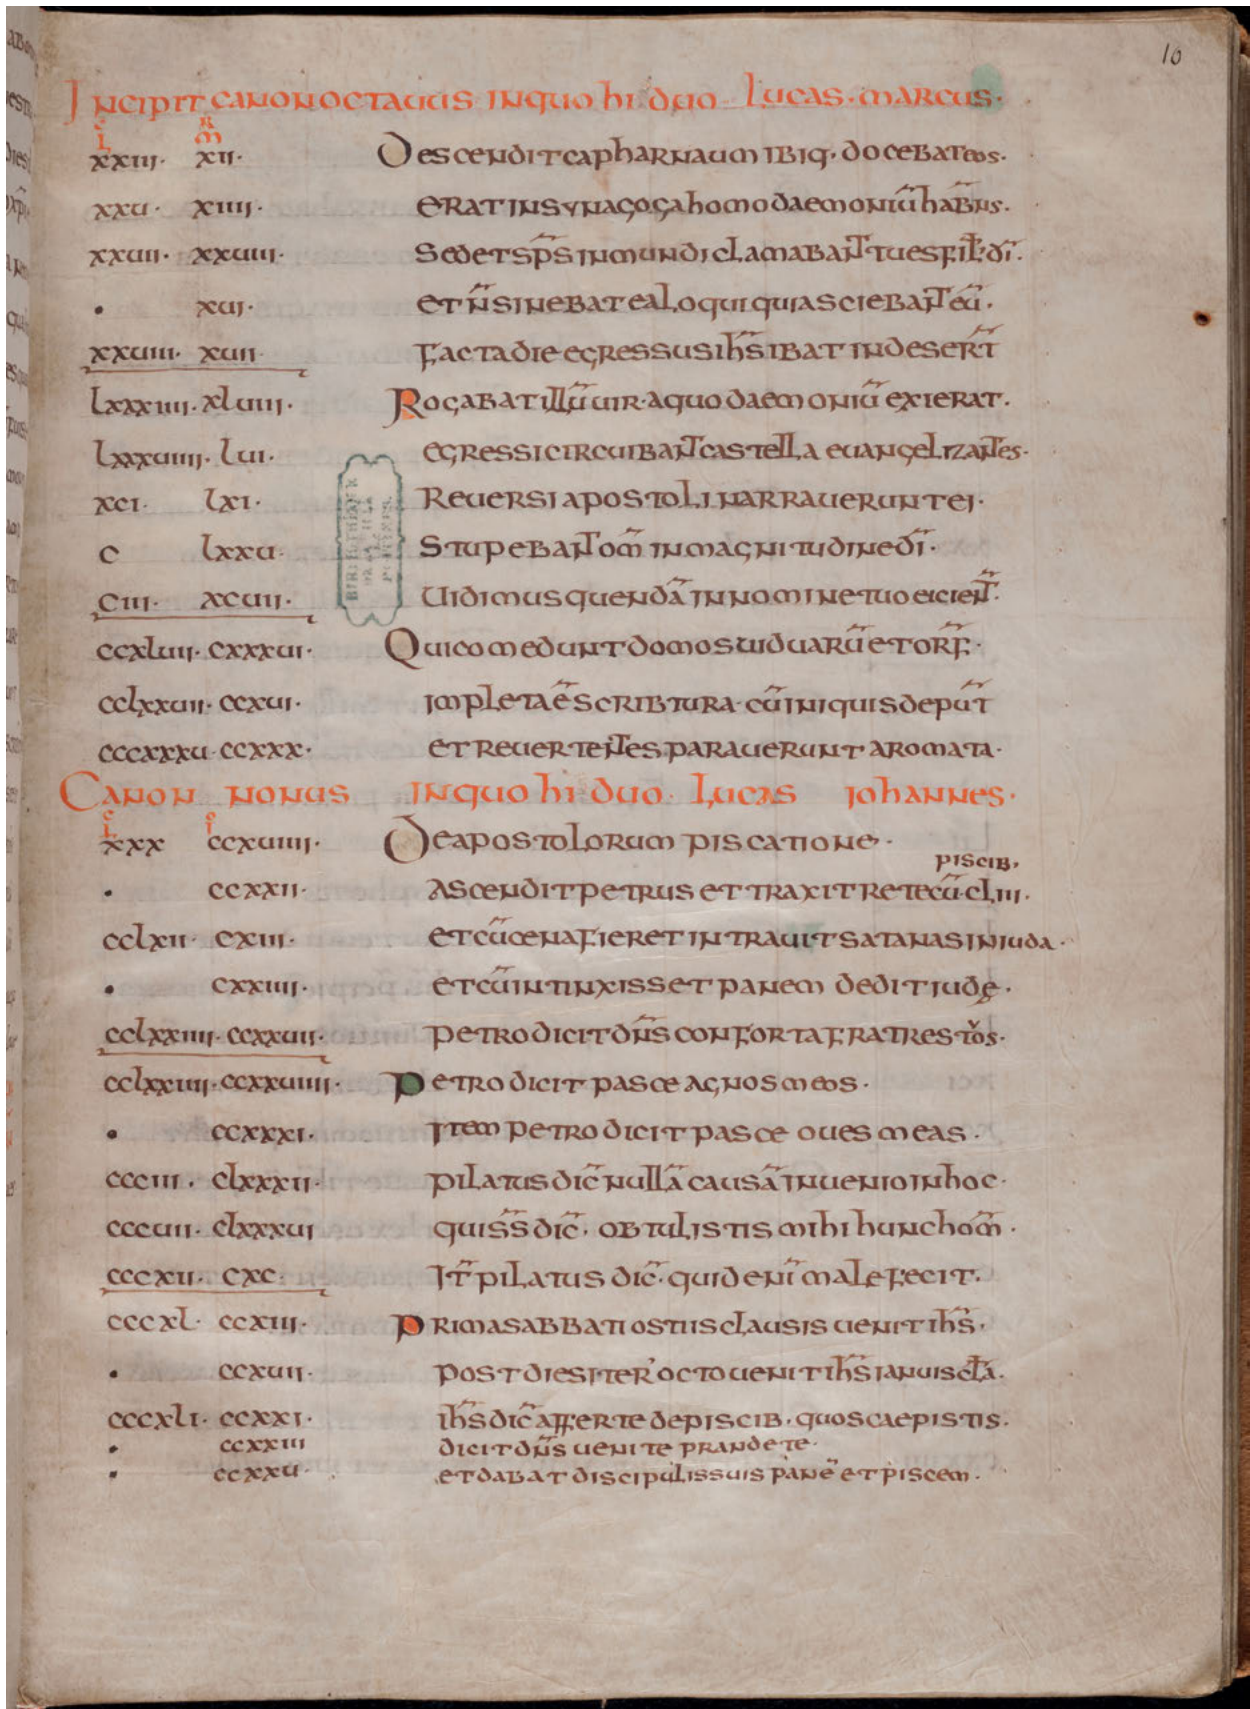 10
Incipit canon octauus in quo hi duo Lucas · marcus ·
L M̃R
xxiii · xii · Descendit capharnaum ibiq · docebat eos ·
xxu · xiiii · erat in synagoga homo daemoniũ habñs ·
xxuii · xxuiii · Sed et sp̃s inmundi clamabañt tu es fil̃ · dĩ ·
· xui · et ñ sinebat ea loqui quia sciebañt eũ ·
xxuiii · xuii · Facta die egressus ih̃s ibat in deser̃t
lxxxiiii · xluiii · Rogabat illũ uir · a quo daemoniũ exierat ·
lxxxuiiii · lui · egressi circuibañt castella euangelizañtes ·
xci · lxi · Reuersi apostoli narrauerunt ei ·
c lxxu · Stupebañt om̃ in magnitudine dĩ ·
ciii · xcuii · Uidimus quendã in nomine tuo eicieñt ·
ccxluii · cxxxui · Qui comedunt domos uiduarũ et orf̃ ·
cclxxuii · ccxui · impleta ẽ scribtura · cũ iniquis depũt
cccxxxu · ccxxx · et reuerteñtes parauerunt aromata ·
Canon nonus in quo hi duo · Lucas iohannes ·
L I
xxx ccxuiiii · De apostolorum piscatione ·
piscib ·
· ccxxii · ascendit petrus et traxit rete cũ · cliii ·
cclxii · cxiii · et cũ cena fieret intrauit satanas in iuda ·
· cxxiiii · et cũ intinxisset panem dedit iudę ·
cclxxiiii · ccxxuii · petro dicit dñs conforta fratres tos ·
cclxxiiii · ccxxuiiii · Petro dicit pasce agnos meos ·
· ccxxxi · item petro dicit pasce oues meas ·
ccciii · clxxxii · pilatus dic̃ nullã causã inuenio in hoc ·
cccuii · clxxxui quis̃s dic̃ · obtulistis mihi hunc hom̃ ·
cccxii · cxc · It̃ pilatus dic̃ · quid enĩ male fecit ·
cccxl · ccxiii · Prima sabbati ostiis clausis uenit ih̃s ·
· ccxuii · post dies iter̃ octo uenit ih̃s ianuis cl̃a ·
cccxli · ccxxi · ih̃s dic̃ afferte de piscib · quos caepistis ·
· ccxxiii dicit dñs uenite prandete ·
· ccxxu · et dabat discipulis suis panẽ et piscem ·